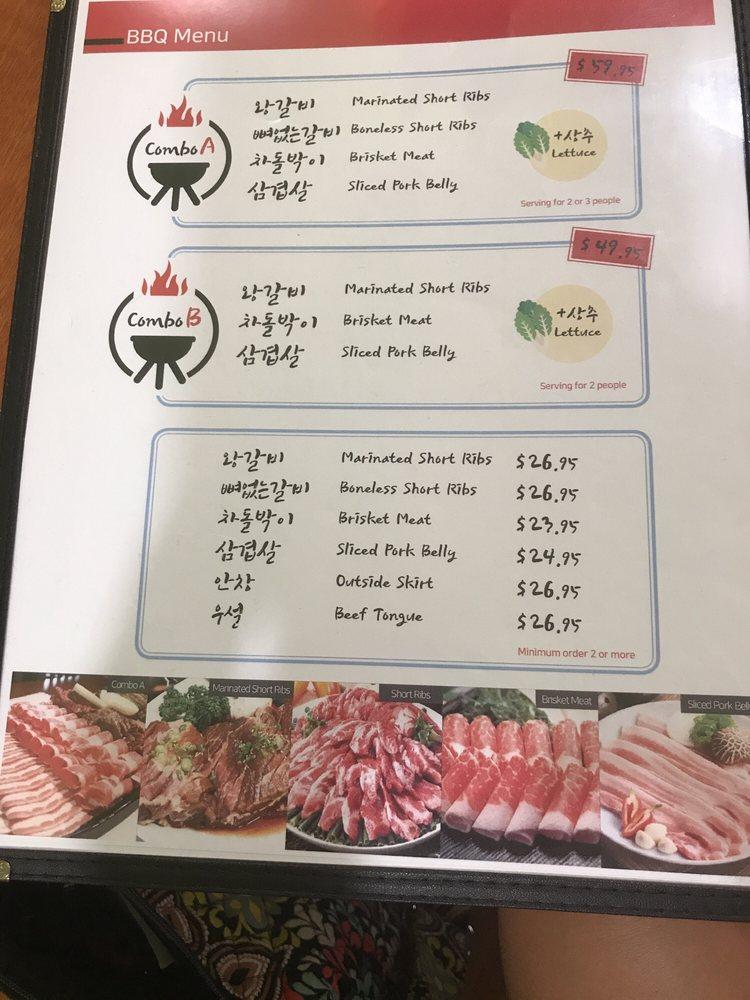 BBQ Menu
$59.95
Combo A
왕갈비 Marinated Short Ribs
뼈없는갈비 Boneless Short Ribs
차돌박이 Brisket Meat
삼겹살 Sliced Pork Belly
+상추
Lettuce
Serving for 2 or 3 people
$49.95
Combo B
왕갈비 Marinated Short Ribs
차돌박이 Brisket Meat
삼겹살 Sliced Pork Belly
+상추
Lettuce
Serving for 2 people
왕갈비 Marinated Short Ribs $26.95
뼈없는갈비 Boneless Short Ribs $26.95
차돌박이 Brisket Meat $23.95
삼겹살 Sliced Pork Belly $24.95
안창 Outside Skirt $26.95
우설 Beef Tongue $26.95
Minimum order 2 or more
Combo A
Marinated Short Ribs
Short Ribs
Brisket Meat
Sliced Pork Bell